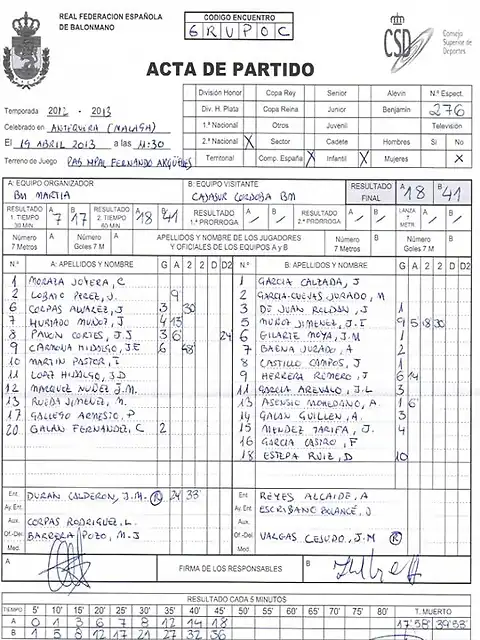 REAL FEDERACION ESPAÑOLA
DE BALONMANO
CODIGO ENCUENTRO
G R U P O C
CSD
Consejo
Superior de
Deportes
ACTA DE PARTIDO
División Honor Copa Rey Senior Alevín N.º Espect.
Div. H. Plata Copa Reina Junior Benjamín 276
1.ª Nacional Otros Juvenil Televisión
2.ª Nacional X Sector Cadete Hombres Si No
Territorial Comp. España X Infantil X Mujeres X
Temporada 2012 - 2013
Celebrado en ANTEQUERA (MALAGA)
El 19 ABRIL 2013 a las 11:30
Terreno de Juego PAB. MPAL FERNANDO ARGÜELLES
A: EQUIPO ORGANIZADOR B: EQUIPO VISITANTE RESULTADO FINAL A 18 B 41
BM MARTIA CAJASUR CORDOBA BM
RESULTADO 1. TIEMPO 30 MIN A 7 B 17 RESULTADO 2. TIEMPO 60 MIN A 18 B 41 RESULTADO 1.ª PRORROGA A / B / RESULTADO 2.ª PRORROGA A / B / LANZ. 7 METR. A / B /
Número 7 Metros A Número Goles 7 M. A APELLIDOS Y NOMBRE DE LOS JUGADORES Y OFICIALES DE LOS EQUIPOS A y B Número 7 Metros B Número Goles 7 M. B
N.º A: APELLIDOS Y NOMBRE G A 2 2 D D2 N.º B: APELLIDOS Y NOMBRE G A 2 2 D D2
1 1 GARCIA CALZADA, J
2 LOBATO PEREZ, J. 9 2 GARCIA-CUEVAS JURADO, M
6 CORPAS ALVAREZ, J 3 30 3 DE JUAN ROLDAN, J 1
7 HURTADO MUÑOZ, J 4 13 5 MUÑOZ JIMENEZ, J.I 9 5 18 30
8 PAVON CORTES, J.J 3 6 24 6 GILARTE MOYA, J.M 1
9 CARMONA HIDALGO, J.E 6 48 7 BAENA JURADO, A 2
10 MARTIN PASTOR, I 8 CASTILLO CAMPOS, J 1
11 LOPEZ HIDALGO, J.D 9 HERRERA ROMERO, J 6 14
12 MARQUEZ NUÑEZ J.M. 11 GARCIA AREVALO, J.L 3
13 RUEDA JIMENEZ, M. 13 ASENSIO MOREDANO, A 1 6
17 GALLEGO ARMESTO, P 14 GALAN GUILLEN, A 3
20 GALAN FERNANDEZ, C 2 15 MENDEZ TARIFA, J. 4
16 GARCIA CASTRO, F
18 ESTEPA RUIZ, D 10
Ent. DURAN CALDERON, J.M. R 24 33 Ent. REYES ALCAIDE, A
Ay. Ent. Ay. Ent. ESCRIBANO
Aux. CORPAS RODRIGUEZ, L. Aux.
Of.-Del. BARRERA POZO, M.J Of.-Del. VARGAS CESUDO, J.M R
Med. Med.
A FIRMA DE LOS RESPONSABLES B
RESULTADO CADA 5 MINUTOS
TIEMPO 5' 10' 15' 20' 25' 30' 35' 40' 45' 50' 55' 60' 65' 70' 75' 80' T. MUERTO
A 0 1 3 6 7 8 12 14 18 17'58" 39'58"
B 1 5 8 12 17 21 27 32 36